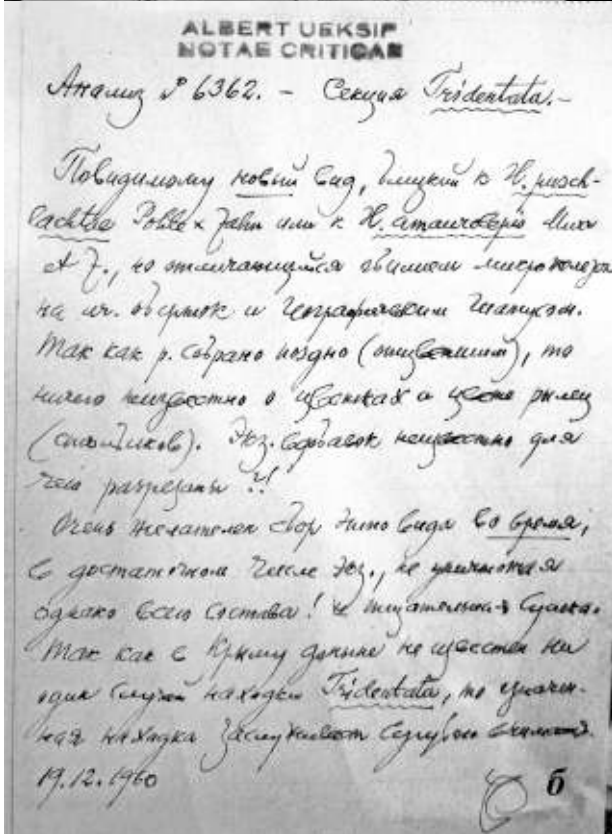 ALBERT UEKSIP
NOTAE CRITICAE
Анализ № 6362. - Секция Tridentata. -
Повидимому новый вид, близкий к H. pusch-
lachtae Pohle x Zahn или к H.
et Z., но отличающийся обилием
на лч. оберток и географическим
Так как р. собрано поздно (отцветшим), то
ничего неизвестно о цветках и цвете рылец
(столбиков). Экз. неизвестно для
чего разрезаны?!
Очень желателен сбор этого вида во время,
в достаточном числе экз., не уничтожая
однако всего состава! и тщательная сушка.
Так как в Крыму доныне не известен ни
один случай находки Tridentata, то означен-
ная находка заслуживает сугубого внимания.
19.12.1960
б